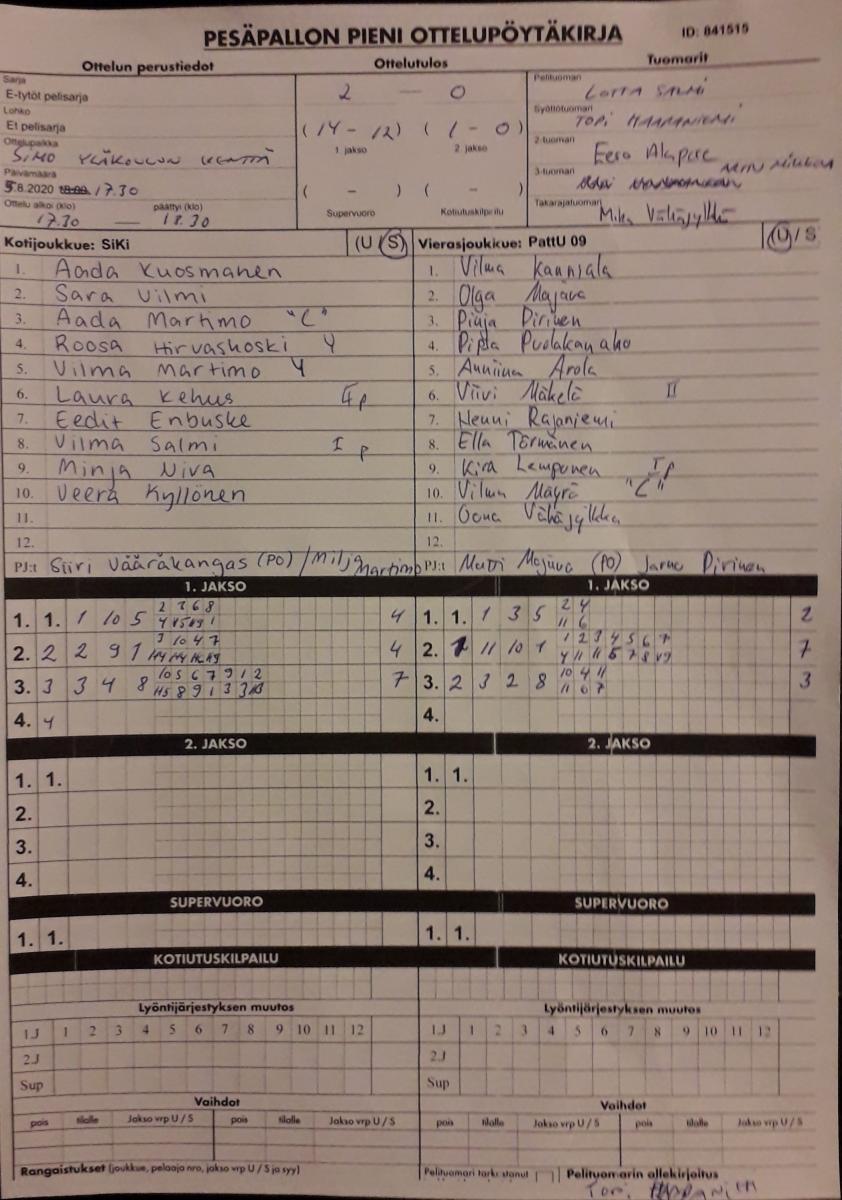 PESÄPALLON PIENI OTTELUPÖYTÄKIRJA ID: 841515
Ottelun perustiedot Ottelutulos Tuomarit
Sarja
E-tytöt pelisarja
Lohko
Ei pelisarja
Ottelupaikka
SIMO YLÄKOULUN KENTTÄ
Päivämäärä
5.8.2020 17.30
Ottelu alkoi (klo) päättyi (klo)
17.30 — 18.30
2 — 0
(14 - 12) (1 - 0)
1 jakso 2 jakso
( - ) ( - )
Supervuoro Kotiutuskilpailu
Pelituomari
LOTTA SALMI
Syöttötuomari
TOPI HAAPANIEMI
2-tuomari
Eero Alapere
3-tuomari
Takarajatuomari
Mika Vähäjylkkä
Kotijoukkue: SiKi (U / S)
1. Aada Kuosmanen
2. Sara Vilmi
3. Aada Martimo "C"
4. Roosa Hirvaskoski Y
5. Vilma Martimo Y
6. Laura Kehus
7. Eedit Enbuske
8. Vilma Salmi I p
9. Minja Niva
10. Veera Kyllönen
11.
12.
PJ:t Siiri Vääräkangas (PO) / Milja Martimo
Vierasjoukkue: PattU 09 (U / S)
1. Vilma Kanniala
2. Olga Majava
3. Pinja Pirinen
4. Pipsa Puolakanaho
5. Anniina Arola
6. Viivi Mäkelä II
7. Henni Rajaniemi
8. Ella Törmänen
9. Kira Lemponen I p
10. Vilma Mäyrä "C"
11. Oona Vähäjylkkä
12.
PJ:t Matti Majava (PO) Jarno Pirinen
1. JAKSO 1. JAKSO
1. 1. 1 10 5 2 3 6 8 4
2. 2 2 9 1 3 10 4 7 4
3. 3 3 4 8 10 5 6 7 9 1 2 7
4. 4
1. 1. 1 3 5 2 4 11 6 2
2. 11 10 1 1 2 3 4 5 6 7 7
3. 2 3 2 8 10 4 11 11 6 7 3
4.
2. JAKSO 2. JAKSO
1. 1. 1. 1.
2. 2.
3. 3.
4. 4.
SUPERVUORO SUPERVUORO
1. 1. 1. 1.
KOTIUTUSKILPAILU KOTIUTUSKILPAILU
Lyöntijärjestyksen muutos Lyöntijärjestyksen muutos
1J 1 2 3 4 5 6 7 8 9 10 11 12 1J 1 2 3 4 5 6 7 8 9 10 11 12
2J 2J
Sup Sup
Vaihdot Vaihdot
pois tilalle Jakso vrp U / S pois tilalle Jakso vrp U / S pois tilalle Jakso vrp U / S pois tilalle Jakso vrp U / S
Rangaistukset (joukkue, pelaaja nro, jakso vrp U / S ja syy) Pelituomari tarkistanut Pelituomarin allekirjoitus